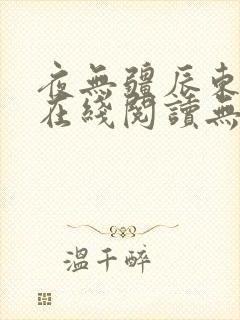 夜無疆辰東
在綫閱讀無
溫千醉